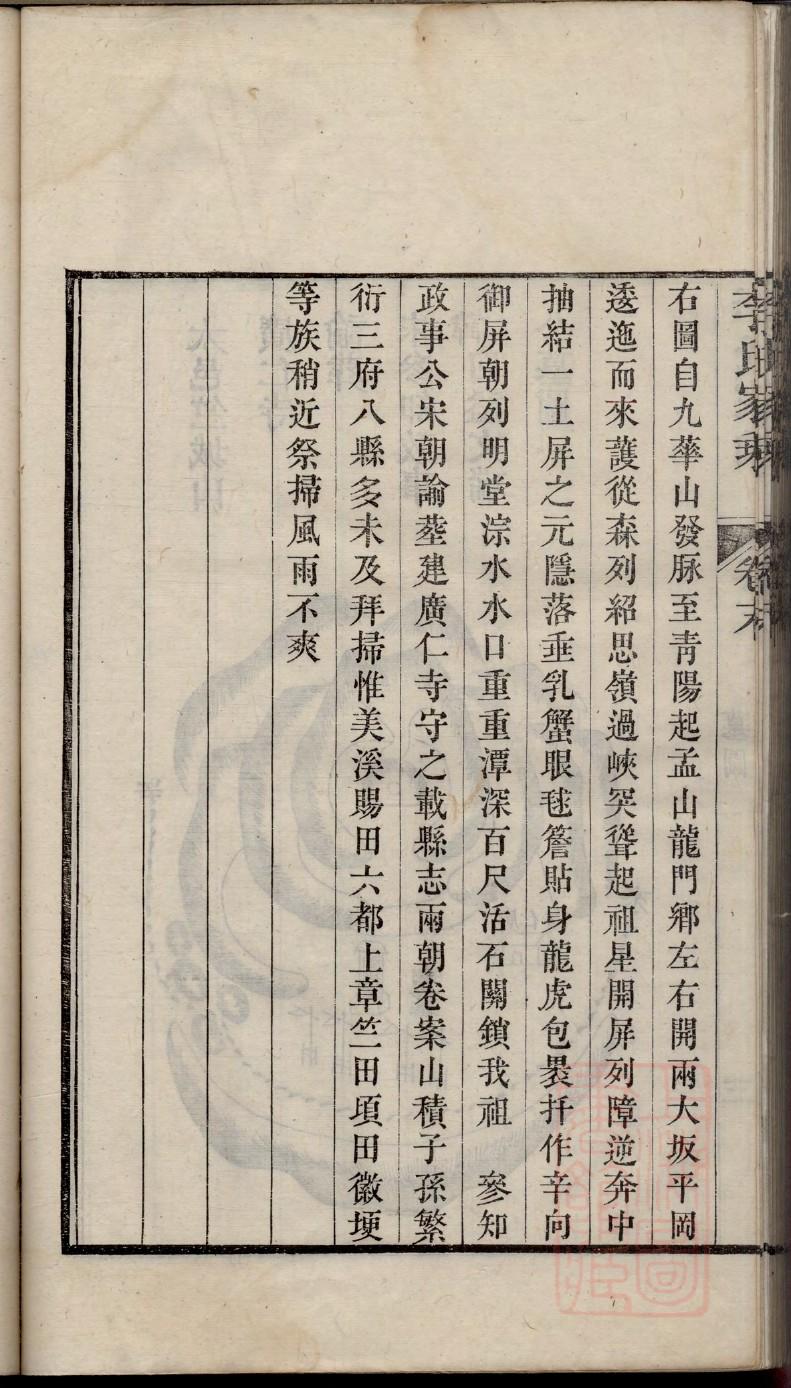 李氏家乘
卷六
右圖自九華山發脉至青陽起孟山龍門鄉左右開兩大坂平岡
逶迤而來護從森列紹思嶺過峽突聳起祖星開屏列障逆奔中
抽結一土屏之元隱落垂乳蟹眼毬簷貼身龍虎包褁扦作辛向
御屏朝列明堂淙水水口重重潭深百尺活石關鎖我祖　參知
政事公宋朝諭塟建廣仁寺守之載縣志兩朝卷案山積子孫繁
衍三府八縣多未及拜掃惟美溪賜田六都上章竺田項田徽埂
等族稍近祭掃風雨不爽